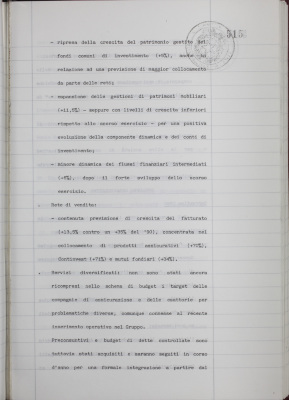 515
- ripresa della crescita del patrimonio gestito dei
fondi comuni di investimento (+6%), anche in
relazione ad una previsione di maggior collocamento
da parte delle reti;
- espansione delle gestioni di patrimoni mobiliari
(+11,5%) - seppure con livelli di crescita inferiori
rispetto allo scorso esercizio - per una positiva
evoluzione della componente dinamica e dei conti di
investimento;
- minore dinamica dei flussi finanziari intermediati
(+5%), dopo il forte sviluppo dello scorso
esercizio.
. Rete di vendita:
- contenuta previsione di crescita del fatturato
(+18,5% contro un +35% del '90), concentrata nel
collocamento di prodotti assicurativi
(+71%) e mutui fondiari (+34%).
. Servizi diversificati: non sono stati ancora
ricompresi nello schema di budget i target delle
compagnie di assicurazione e delle societario per
problematiche diverse, comunque connesse al recente
inserimento operativo nel Gruppo.
Preconsuntivi e budget di dette controllate sono
tuttavia stati acquisiti e saranno seguiti in corso
d'anno per una formale integrazione a partire dal